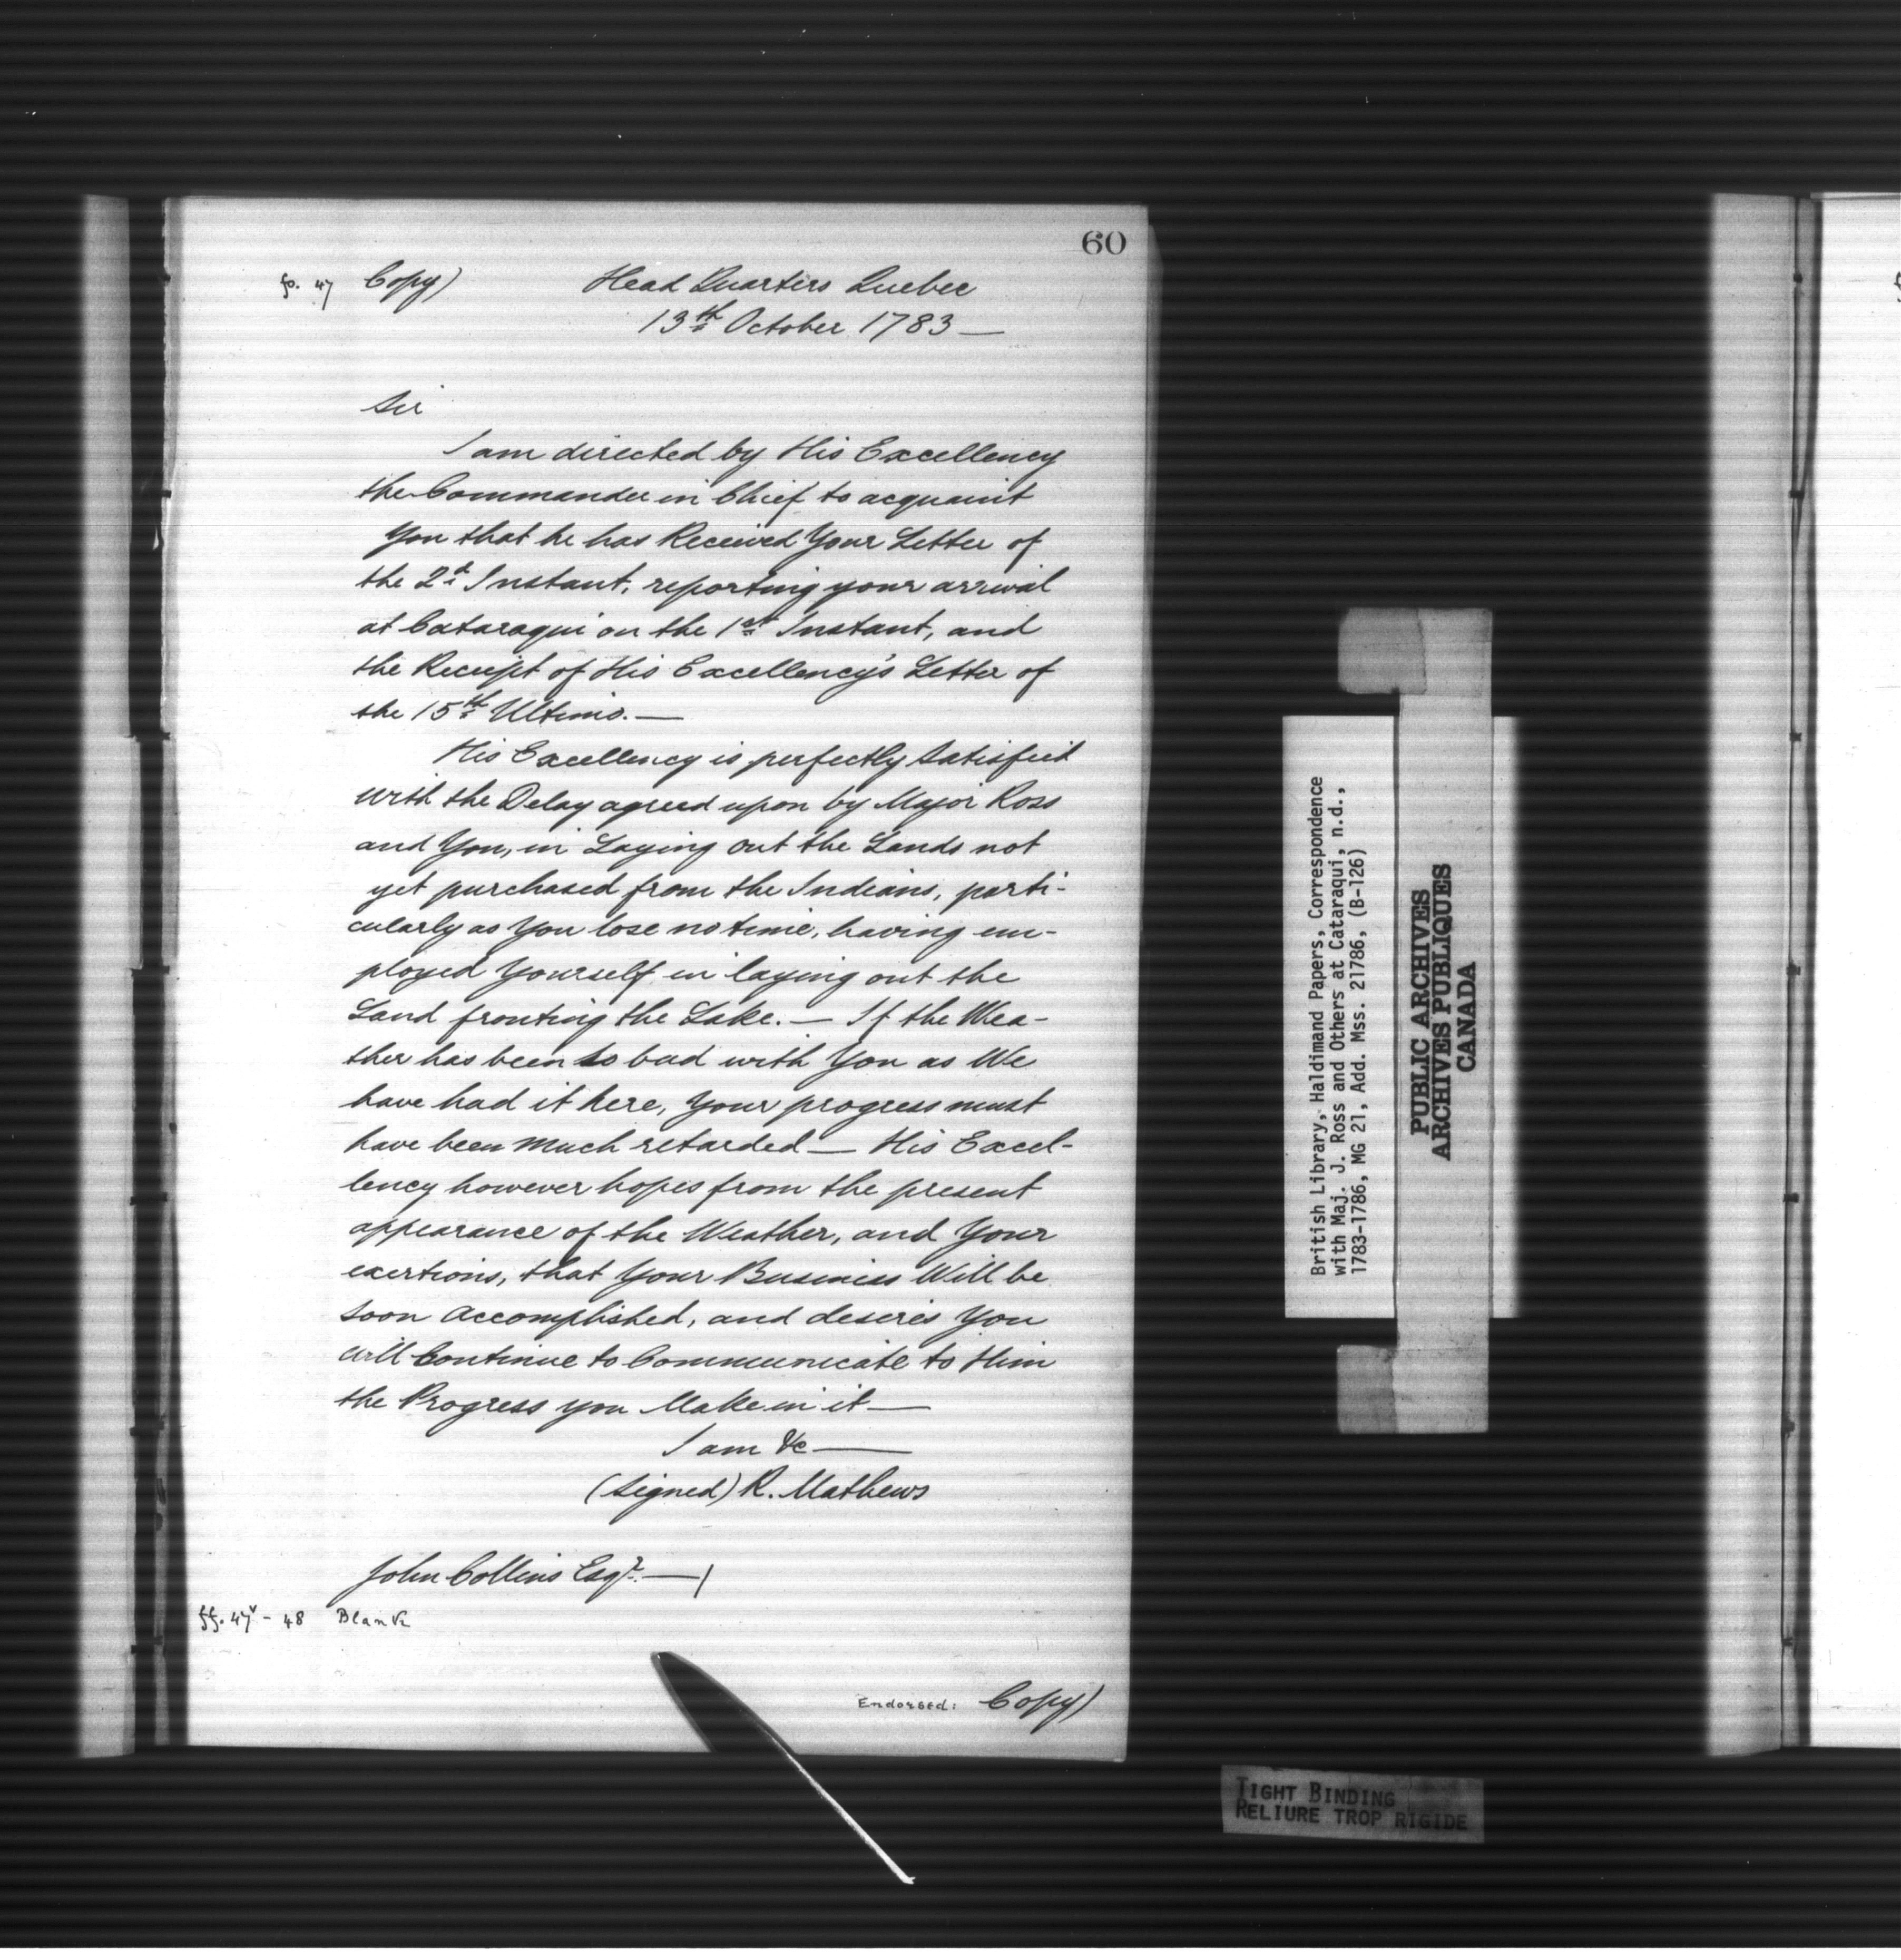 60
fo. 47 Copy)
Head Quarters Quebec
13th October 1783 —
Sir
I am directed by His Excellency
the Commander in Chief to acquaint
You that he has Received Your Letter of
the 2d Instant, reporting your arrival
at Cataraqui on the 1st Instant, and
the Receipt of His Excellency's Letter of
the 15th Ultimo. —
His Excellency is perfectly Satisfied
with the Delay agreed upon by Major Ross
and You, in Laying out the Lands not
yet purchased from the Indians, parti-
cularly as You lose no time, having em-
ployed Yourself in laying out the
Land fronting the Lake. — If the Wea-
ther has been so bad with You as We
have had it here, Your progress must
have been much retarded — His Excel-
lency however hopes from the present
appearance of the Weather, and Your
exertions, that Your Business Will be
soon accomplished, and desires You
will Continue to Communicate to Him
the Progress you Make in it —
I am &c —
(Signed) R. Mathews
John Collins Esqr. —
ff. 47v - 48 Blank
Endorsed: Copy)
British Library, Haldimand Papers, Correspondence
with Maj. J. Ross and Others at Cataraqui, n.d.,
1783-1786, MG 21, Add. Mss. 21786, (B-126)
PUBLIC ARCHIVES
ARCHIVES PUBLIQUES
CANADA
TIGHT BINDING
RELIURE TROP RIGIDE